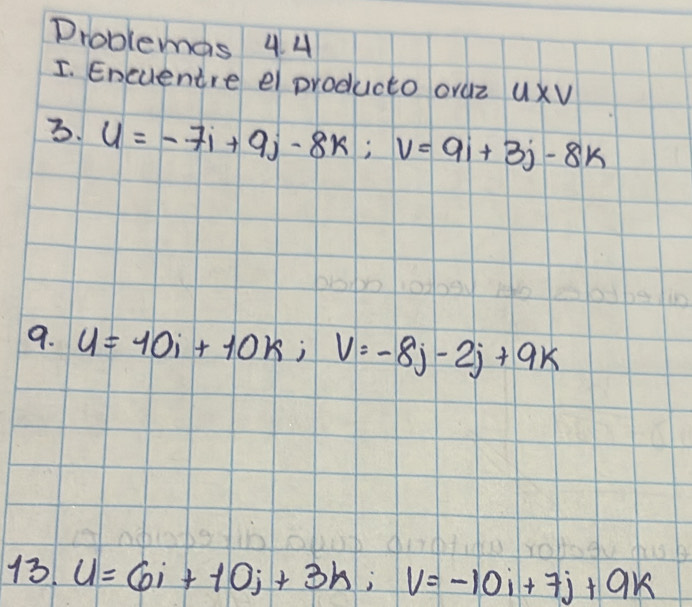 Problemas 4.4
I. Encuentre el producto cruz u×v
3. u = -7i + 9j - 8k ; v = 9i + 3j - 8k
9. u = 10i + 10k ; v = -8j - 2j + 9k
13. u = 6i + 10j + 3k ; v = -10i + 7j + 9k